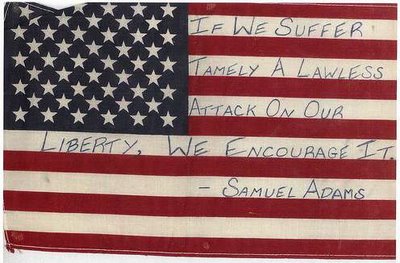 If We Suffer
Tamely A Lawless
Attack On Our
Liberty, We Encourage It.
- Samuel Adams